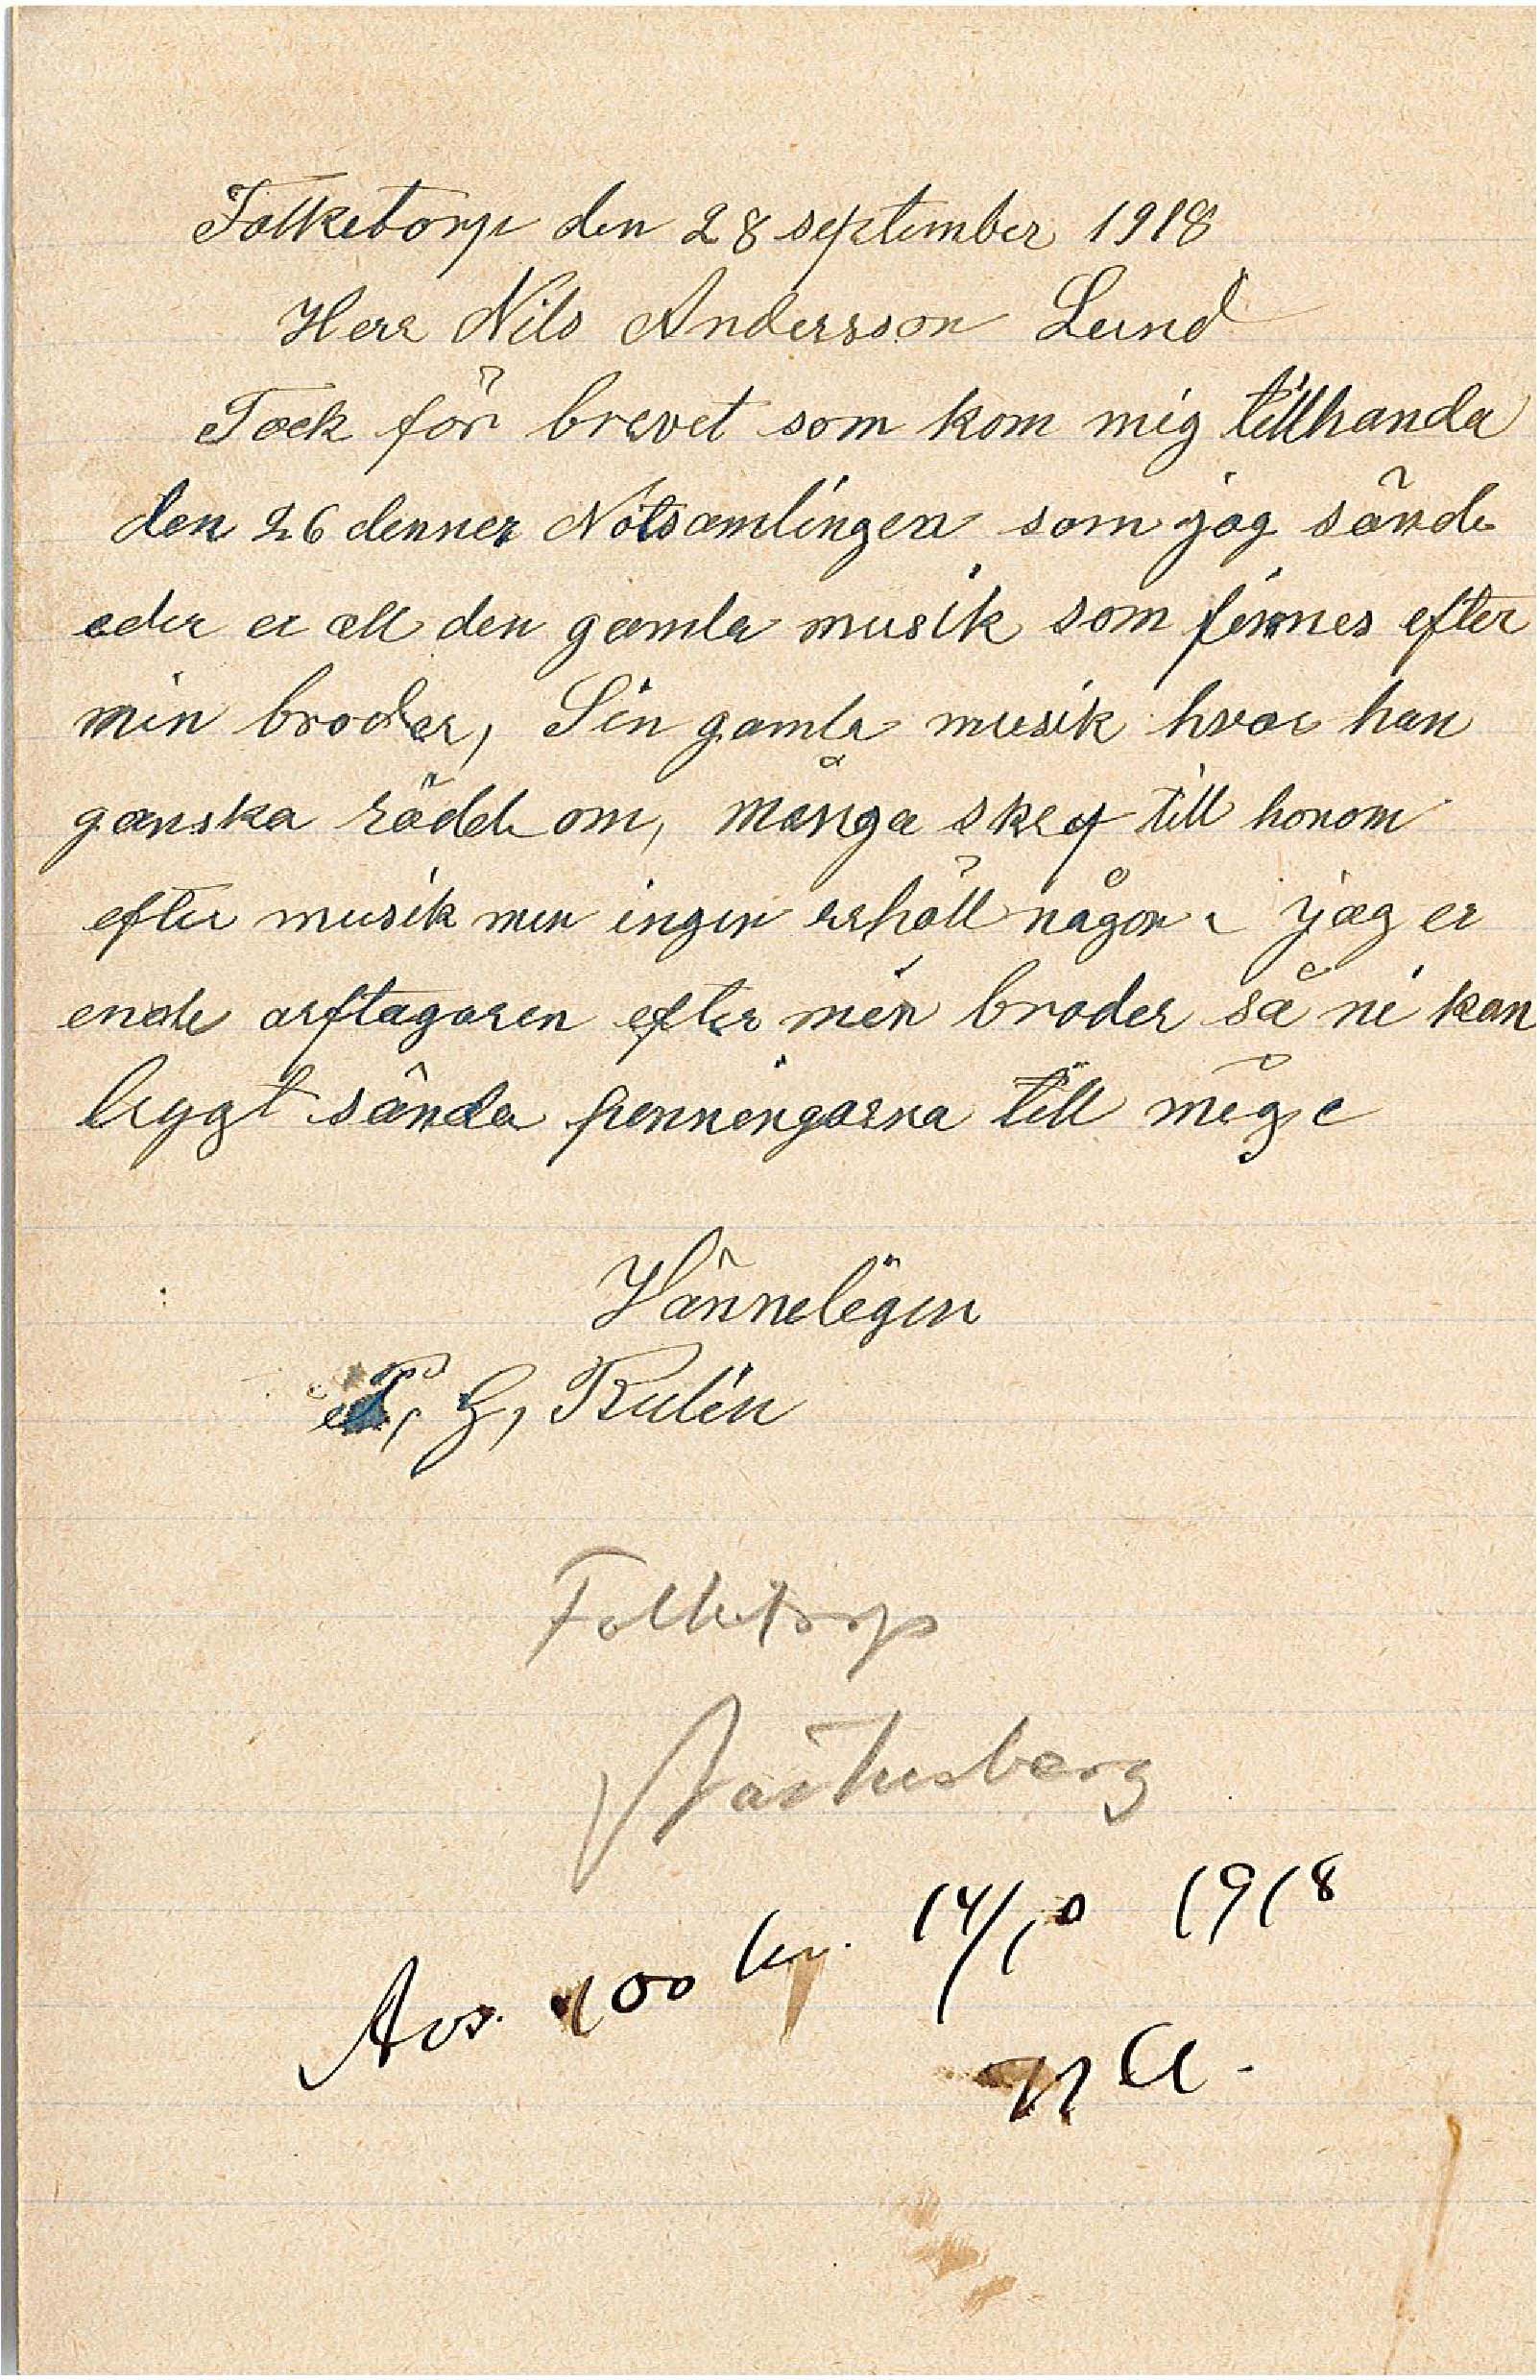 Folketorp den 28 september 1918
Herr Nils Andersson Lund
Tack för brevet som kom mig tillhanda
den 26 dennes Notsamlingen som jag sände
eder er all den gamla musik som finnes efter
min broder, Sin gamla musik hvar han
ganska rädd om, många skref till honom
efter musik men ingen erhöll någon. jag er
enda arftagaren efter min broder så ni kan
lyggt sända penningarna till mig,
Vänneligen
G, Rulin
Folketorp
Västusberg
Avs. 100 kr. 14/10 1918
N A.